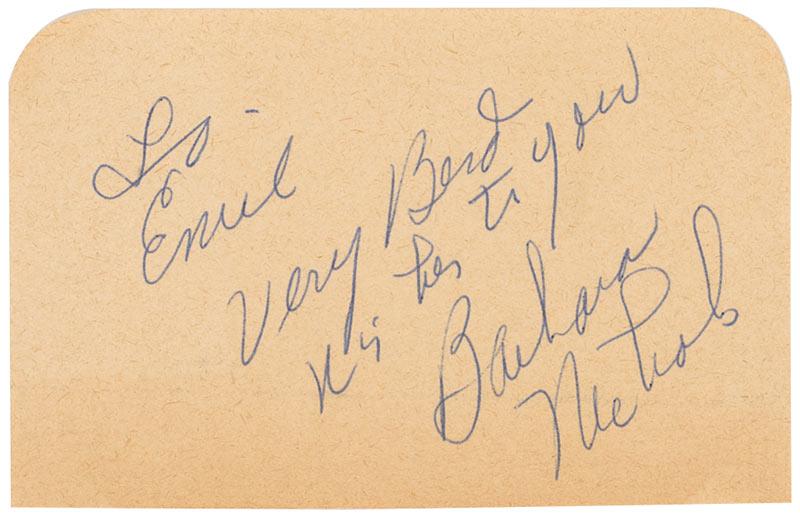 To -
Emil
Very Best
Wishes to you
Barbara
Nichols